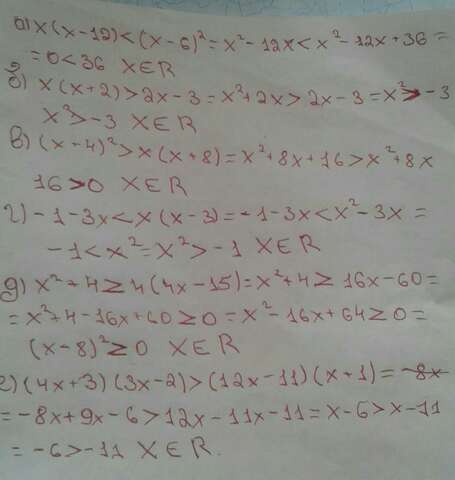 а) x(x-12)<(x-6)²=x²-12x<x²-12x+36=
=0<36 XЄR
б) x(x+2)>2x-3=x²+2x>2x-3=x²>-3
x²>-3 XЄR
в) (x-4)²>x(x+8)=x²+8x+16>x²+8x
16>0 XЄR
г) -1-3x<x(x-3)=-1-3x<x²-3x=
-1<x²=x²>-1 XЄR
д) x²+4≥4(4x-15)=x²+4≥16x-60=
=x²+4-16x+60≥0=x²-16x+64≥0=
(x-8)²≥0 XЄR
е) (4x+3)(3x-2)>(12x-11)(x+1)=-8x
=-8x+9x-6>12x-11x-11=x-6>x-11
=-6>-11 XЄR.